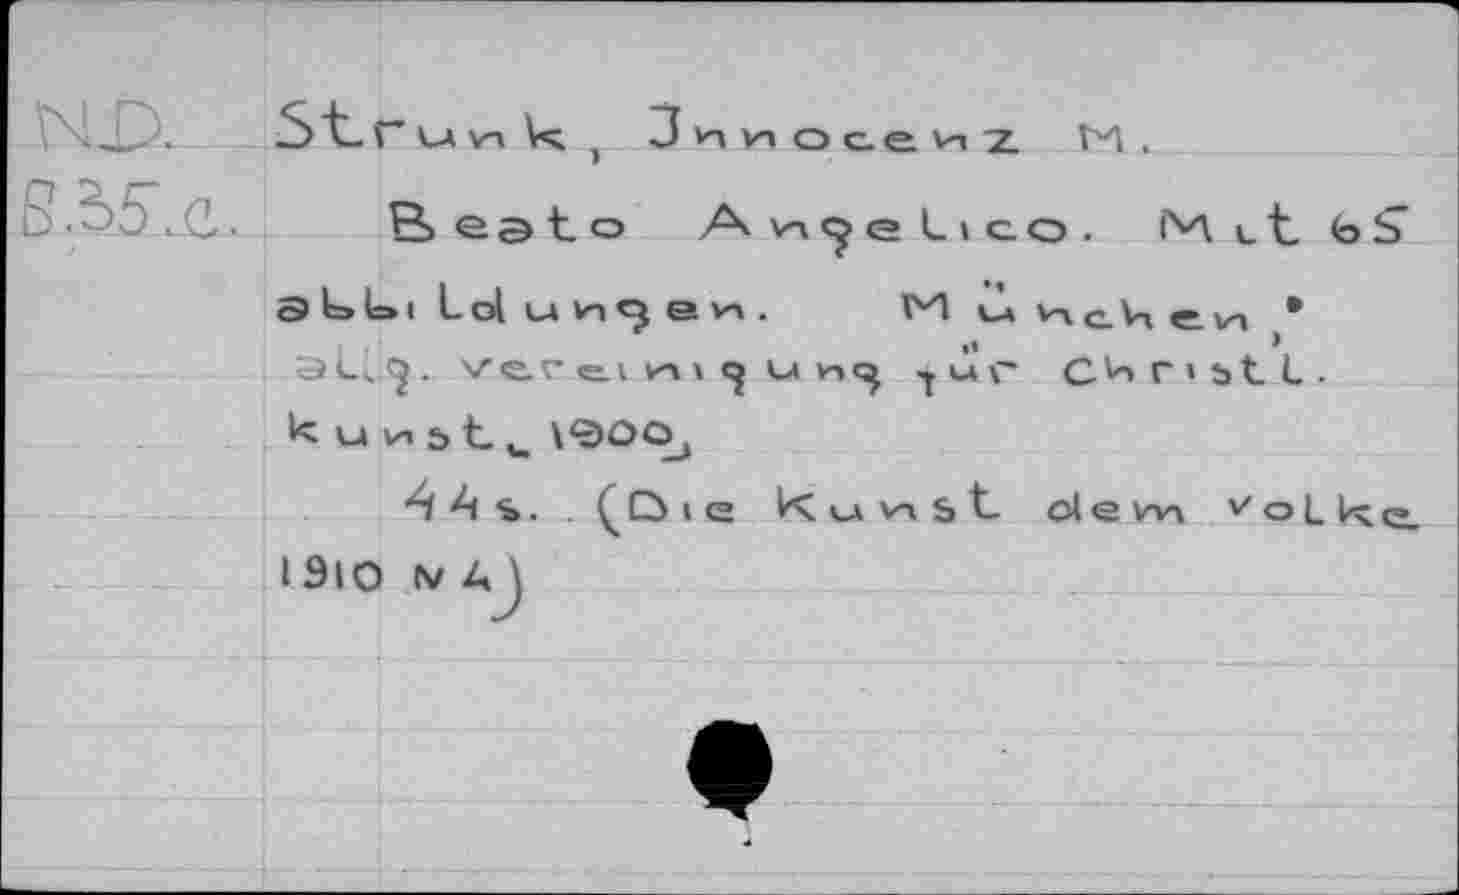 N.D. Strunk, Innocenz M.
B.35.c. Beato Angelico. Mit 65
abbildungen. München;
allg. vereinigung für christl.
kunst 1900
44 s. (Die Kunst dem volke
1910 N 4)